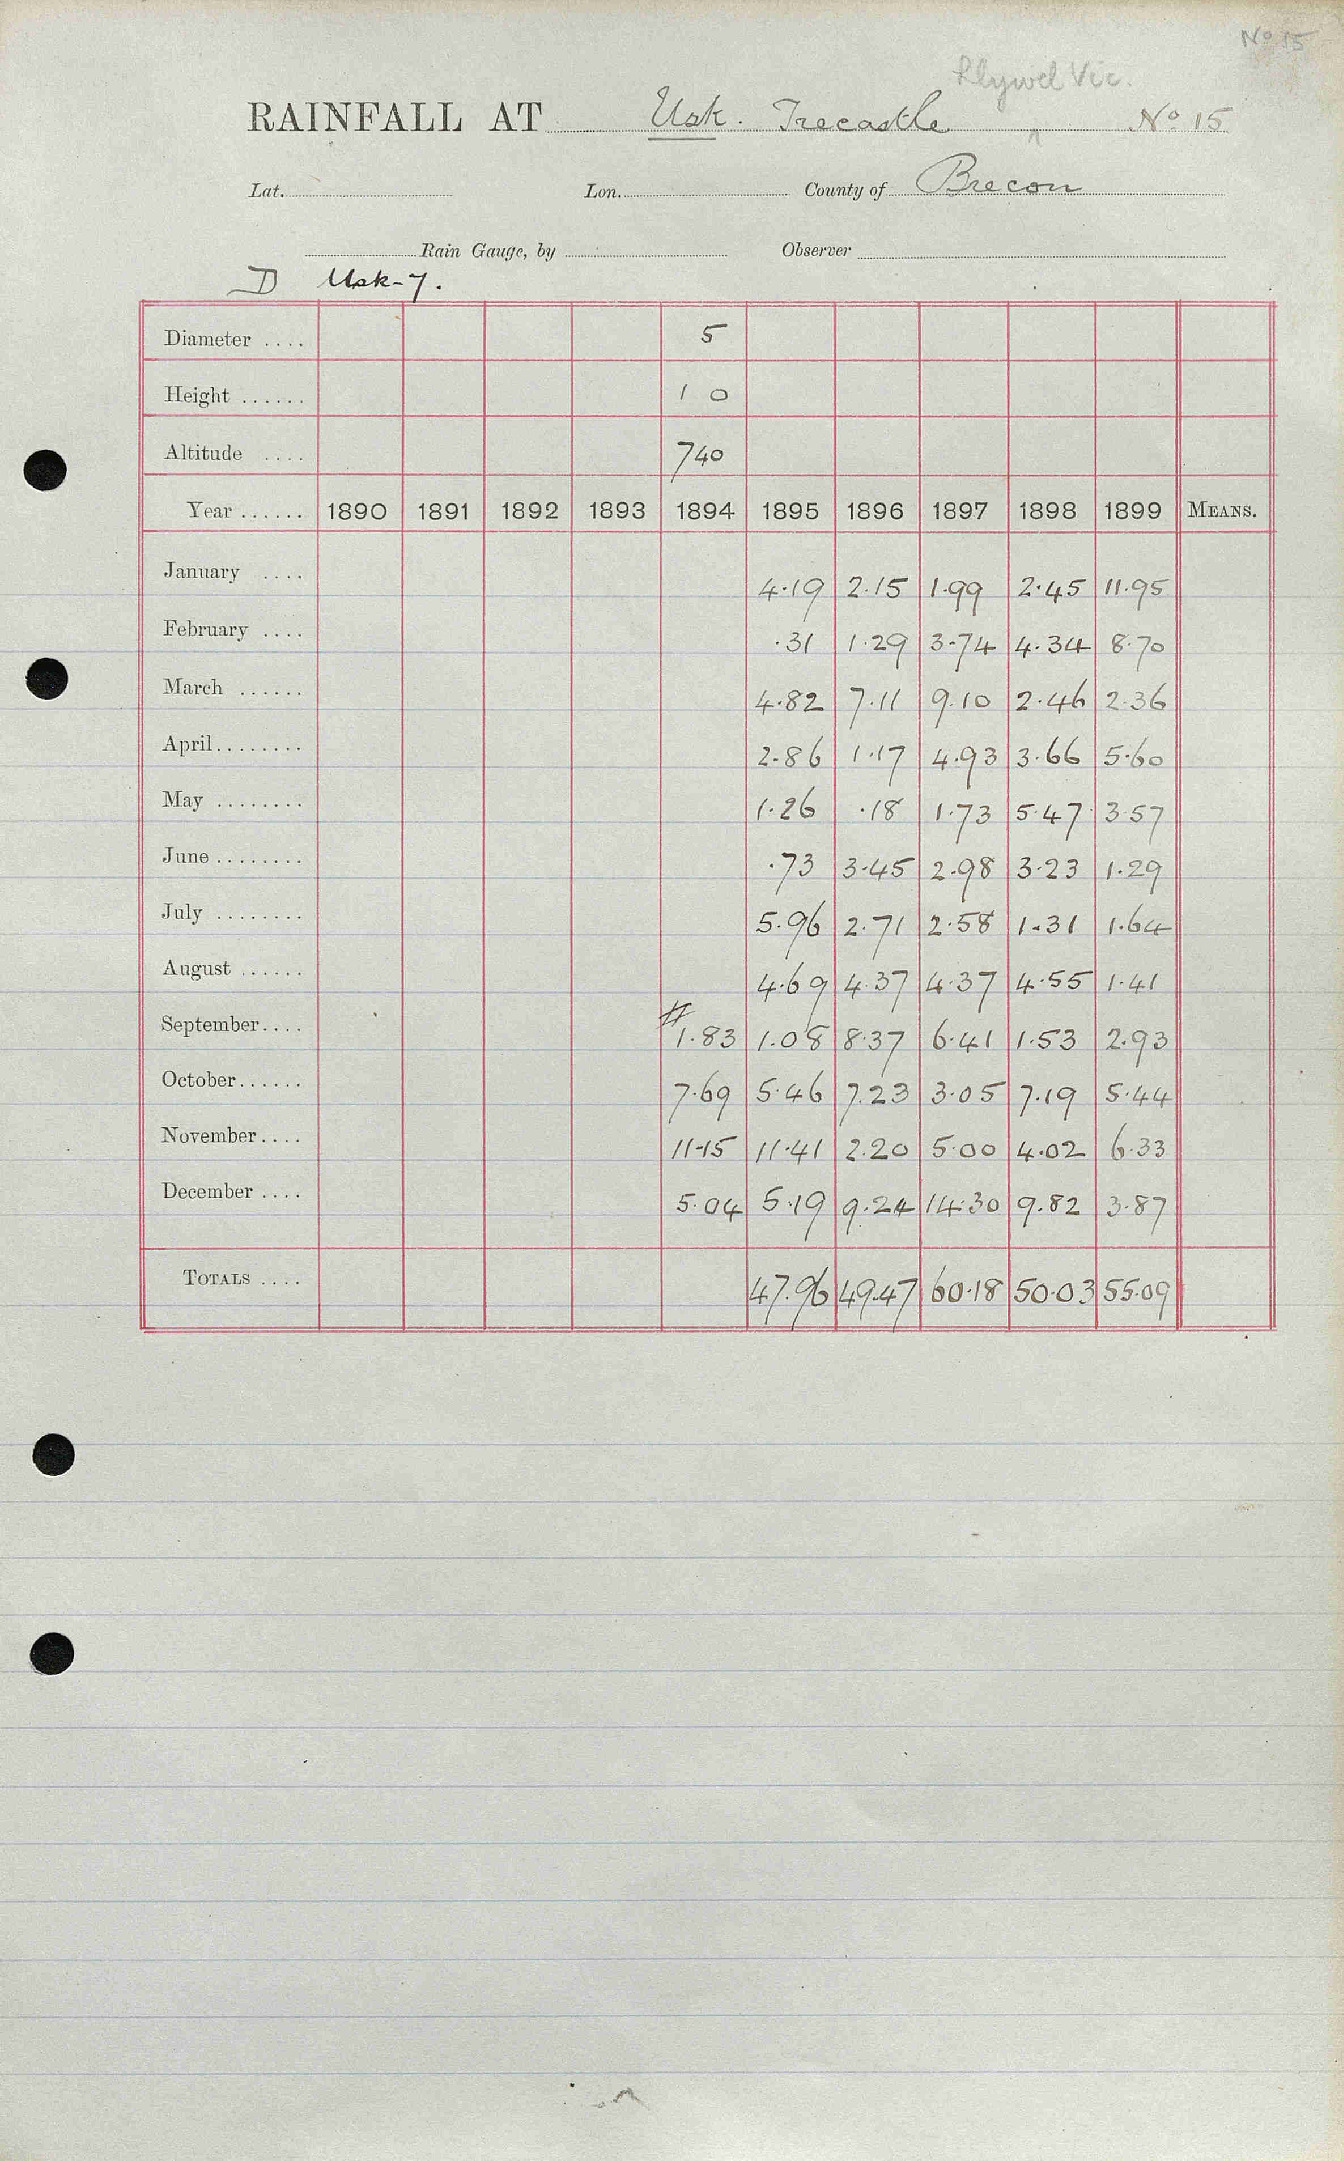 No 15
Llywel Vic.
RAINFALL AT Usk. Trecastle No 15
Lat. Lon. County of Brecon
Rain Gauge, by Observer
D Usk-7.
Diameter .... 5
Height ...... 1 0
Altitude .... 740
Year ...... 1890 1891 1892 1893 1894 1895 1896 1897 1898 1899 MEANS.
January .... 4.19 2.15 1.99 2.45 11.95
February .... .31 1.29 3.74 4.34 8.70
March ...... 4.82 7.11 9.10 2.46 2.36
April........ 2.86 1.17 4.93 3.66 5.60
May ........ 1.26 .18 1.73 5.47 3.57
June........ .73 3.45 2.98 3.23 1.29
July ........ 5.96 2.71 2.58 1.31 1.64
August ...... 4.69 4.37 4.37 4.55 1.41
September.... # 1.83 1.08 8.37 6.41 1.53 2.93
October...... 7.69 5.46 7.23 3.05 7.19 5.44
November.... 11.15 11.41 2.20 5.00 4.02 6.33
December .... 5.04 5.19 9.24 14.30 9.82 3.87
TOTALS .... 47.96 49.47 60.18 50.03 55.09